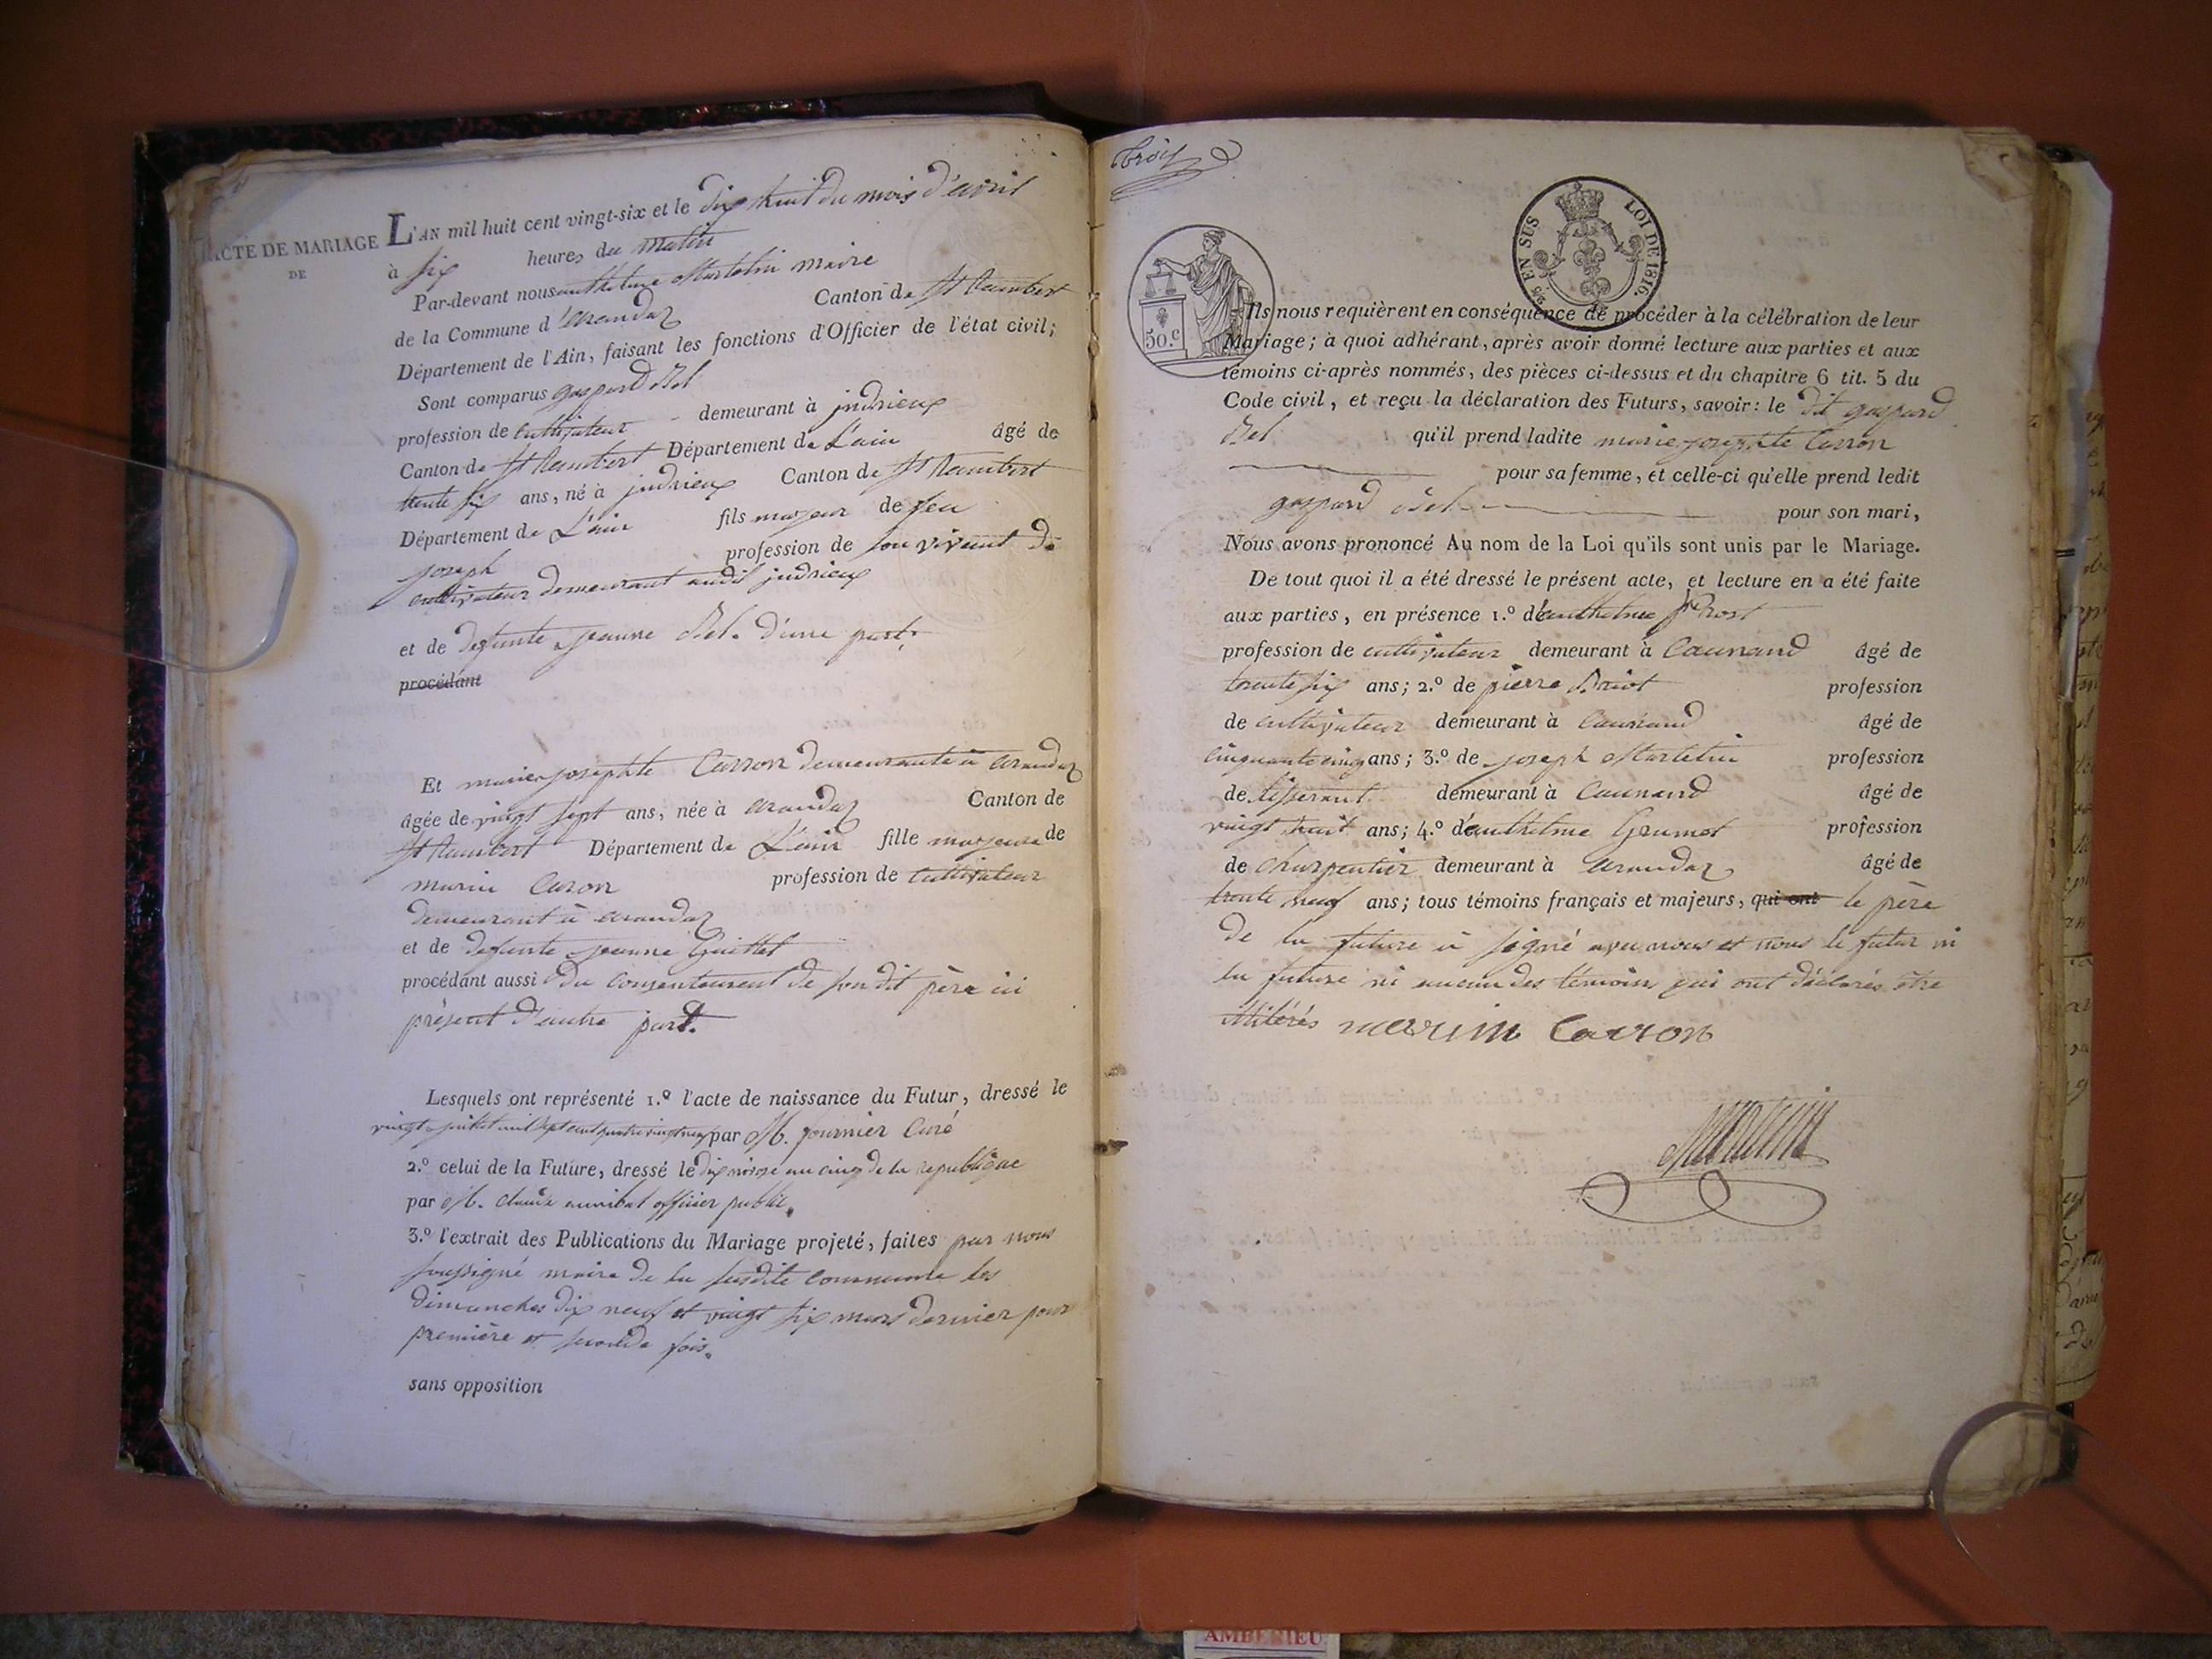 ACTE DE MARIAGE
DE
L'AN mil huit cent vingt-six et le dix huit du mois d'avril
à six heures du matin
Par-devant nous anthelme Martelin maire
de la Commune d'arandaz Canton de St Rambert
Département de l'Ain, faisant les fonctions d'Officier de l'état civil;
Sont comparus gaspard Bel
profession de cultivateur demeurant à judrieux
Canton de St Rambert Département de L'ain âgé de
trente six ans, né à judrieux Canton de St Rambert
Département de L'ain fils majeur de feu
joseph profession de son vivant de
cultivateur demeurant audit judrieux
et de defunte jeanne Bel. d'une part.
procédant
Et marie josephte Carron demeurante à arandaz
âgée de vingt sept ans, née à arandaz Canton de
St Rambert Département de L'ain fille majeure de
marin Caron profession de cultivateur
demeurant à arandaz
et de defunte jeanne Guillet
procédant aussi du consentement de son dit père ici
présent d'autre part.
Lesquels ont représenté 1.º l'acte de naissance du Futur, dressé le
vingt juillet mil sept cent quatre vingt neuf par M. fournier Curé
2.º celui de la Future, dressé le dix nivose an cinq de la republique
par M. claude annibal officier public.
3.º l'extrait des Publications du Mariage projeté, faites par nous
soussigné maire de la susdite commune les
dimanches dix neuf et vingt six mars dernier pour
première et seconde fois.
sans opposition
trois
50.C
2/5 EN SUS LOI DE 1816.
Ils nous requièrent en conséquence de procéder à la célébration de leur
Mariage; à quoi adhérant, après avoir donné lecture aux parties et aux
témoins ci-après nommés, des pièces ci-dessus et du chapitre 6 tit. 5 du
Code civil, et reçu la déclaration des Futurs, savoir: le dit gaspard
Bel qu'il prend ladite marie josephte Carron
pour sa femme, et celle-ci qu'elle prend ledit
gaspard Bel pour son mari,
Nous avons prononcé Au nom de la Loi qu'ils sont unis par le Mariage.
De tout quoi il a été dressé le présent acte, et lecture en a été faite
aux parties, en présence 1.º d'anthelme Prost
profession de cultivateur demeurant à Caunand âgé de
trente six ans; 2.º de pierre profession
de cultivateur demeurant à Caunand âgé de
cinquante cinq ans; 3.º de joseph Martelin profession
de tisserant demeurant à Caunand âgé de
vingt huit ans; 4.º d'anthelme Grumet profession
de charpentier demeurant à arandaz âgé de
trente neuf ans; tous témoins français et majeurs, qui ont le père
de la future à signé avec nous et nous le futur ni
la future ni aucun des témoins qui ont déclarés être
illitérés marin Carron
Martelin
AMBERIEU